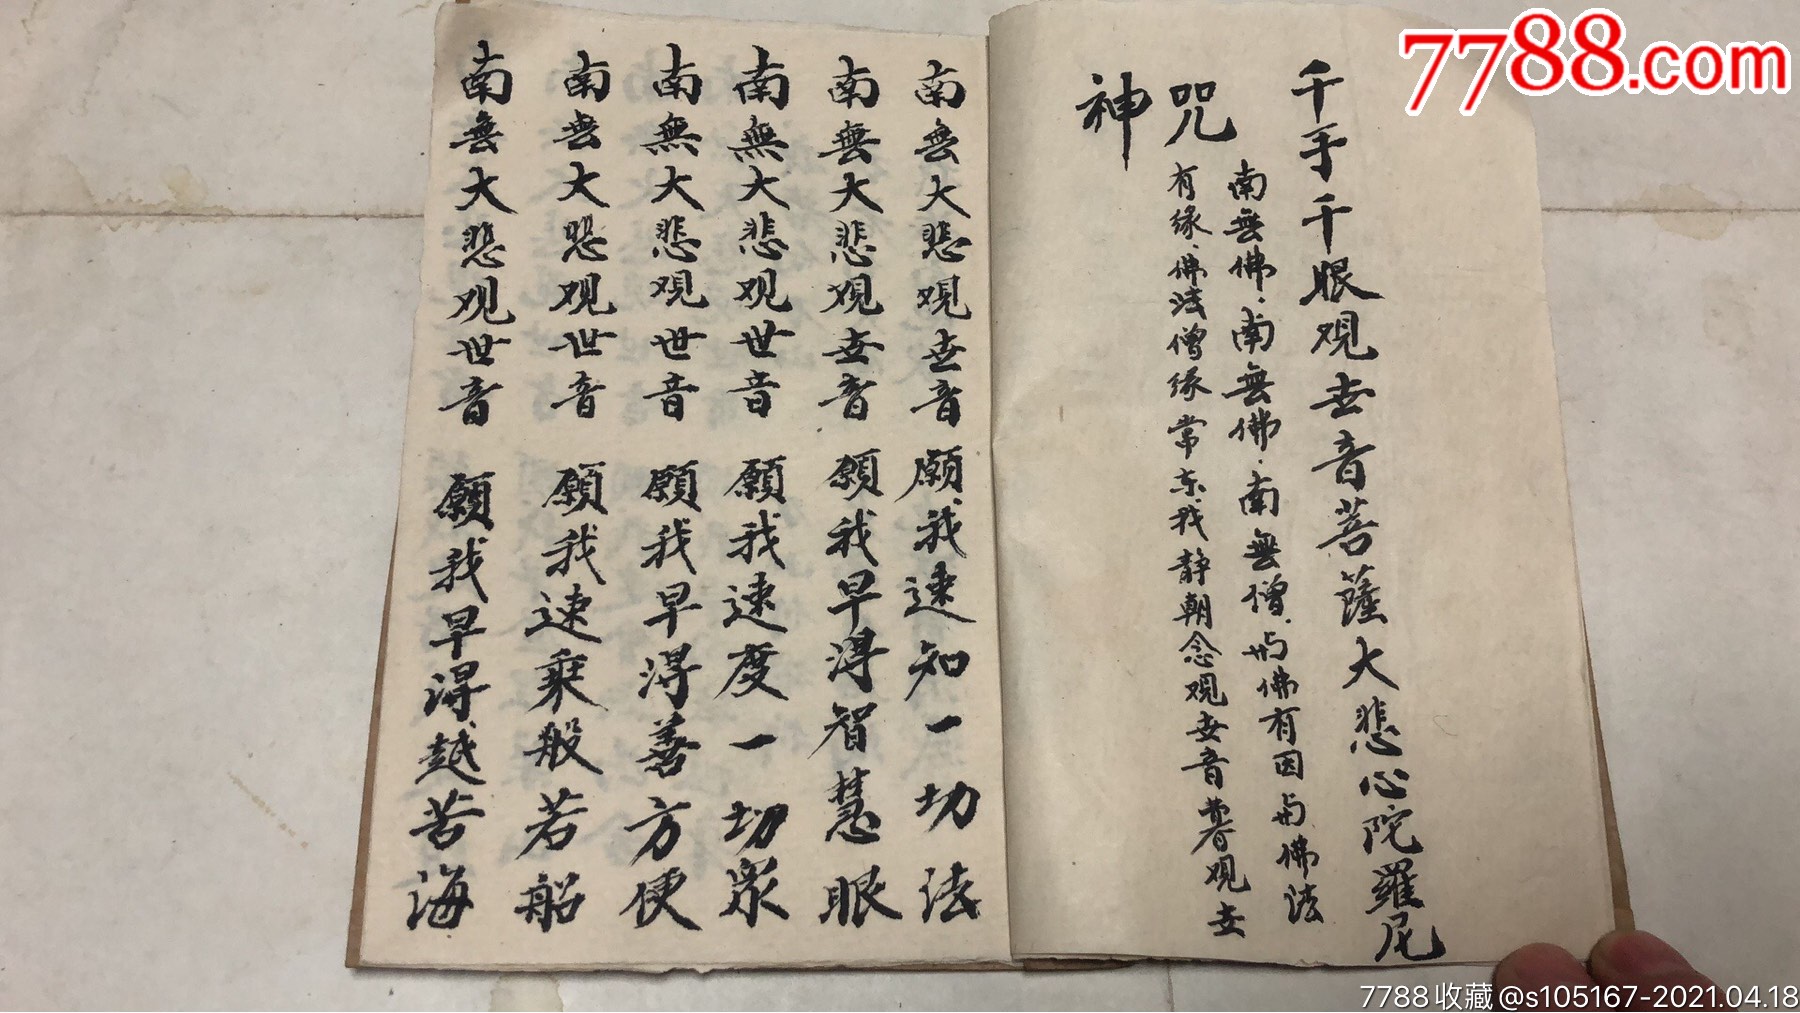 7788.com
千手千眼观世音菩薩大悲心陀羅尼
南無佛.南無佛.南無僧.与佛有因与佛法
咒有缘.佛法僧缘常东我静朝念观世音暮观世
神
南無大悲观世音 願我速知一切法
南無大悲观世音 願我早得智慧眼
南無大悲观世音 願我速度一切眾
南無大悲观世音 願我早得善方便
南無大悲观世音 願我速乘般若船
南無大悲观世音 願我早得越苦海
7788收藏@s105167-2021.04.18